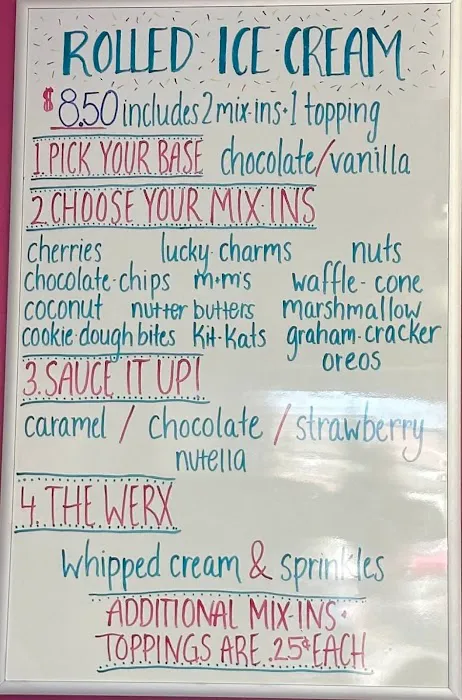 ROLLED ICE CREAM
$8.50 includes 2 mix-ins + 1 topping
1. PICK YOUR BASE chocolate/vanilla
2. CHOOSE YOUR MIX-INS
cherries lucky charms nuts
chocolate chips m+m's waffle-cone
coconut nutter butters marshmallow
cookie dough bites Kit-Kats graham-cracker
oreos
3. SAUCE IT UP!
caramel / chocolate / strawberry
nutella
4. THE WERX
whipped cream & sprinkles
ADDITIONAL MIX-INS +
TOPPINGS ARE .25¢ EACH